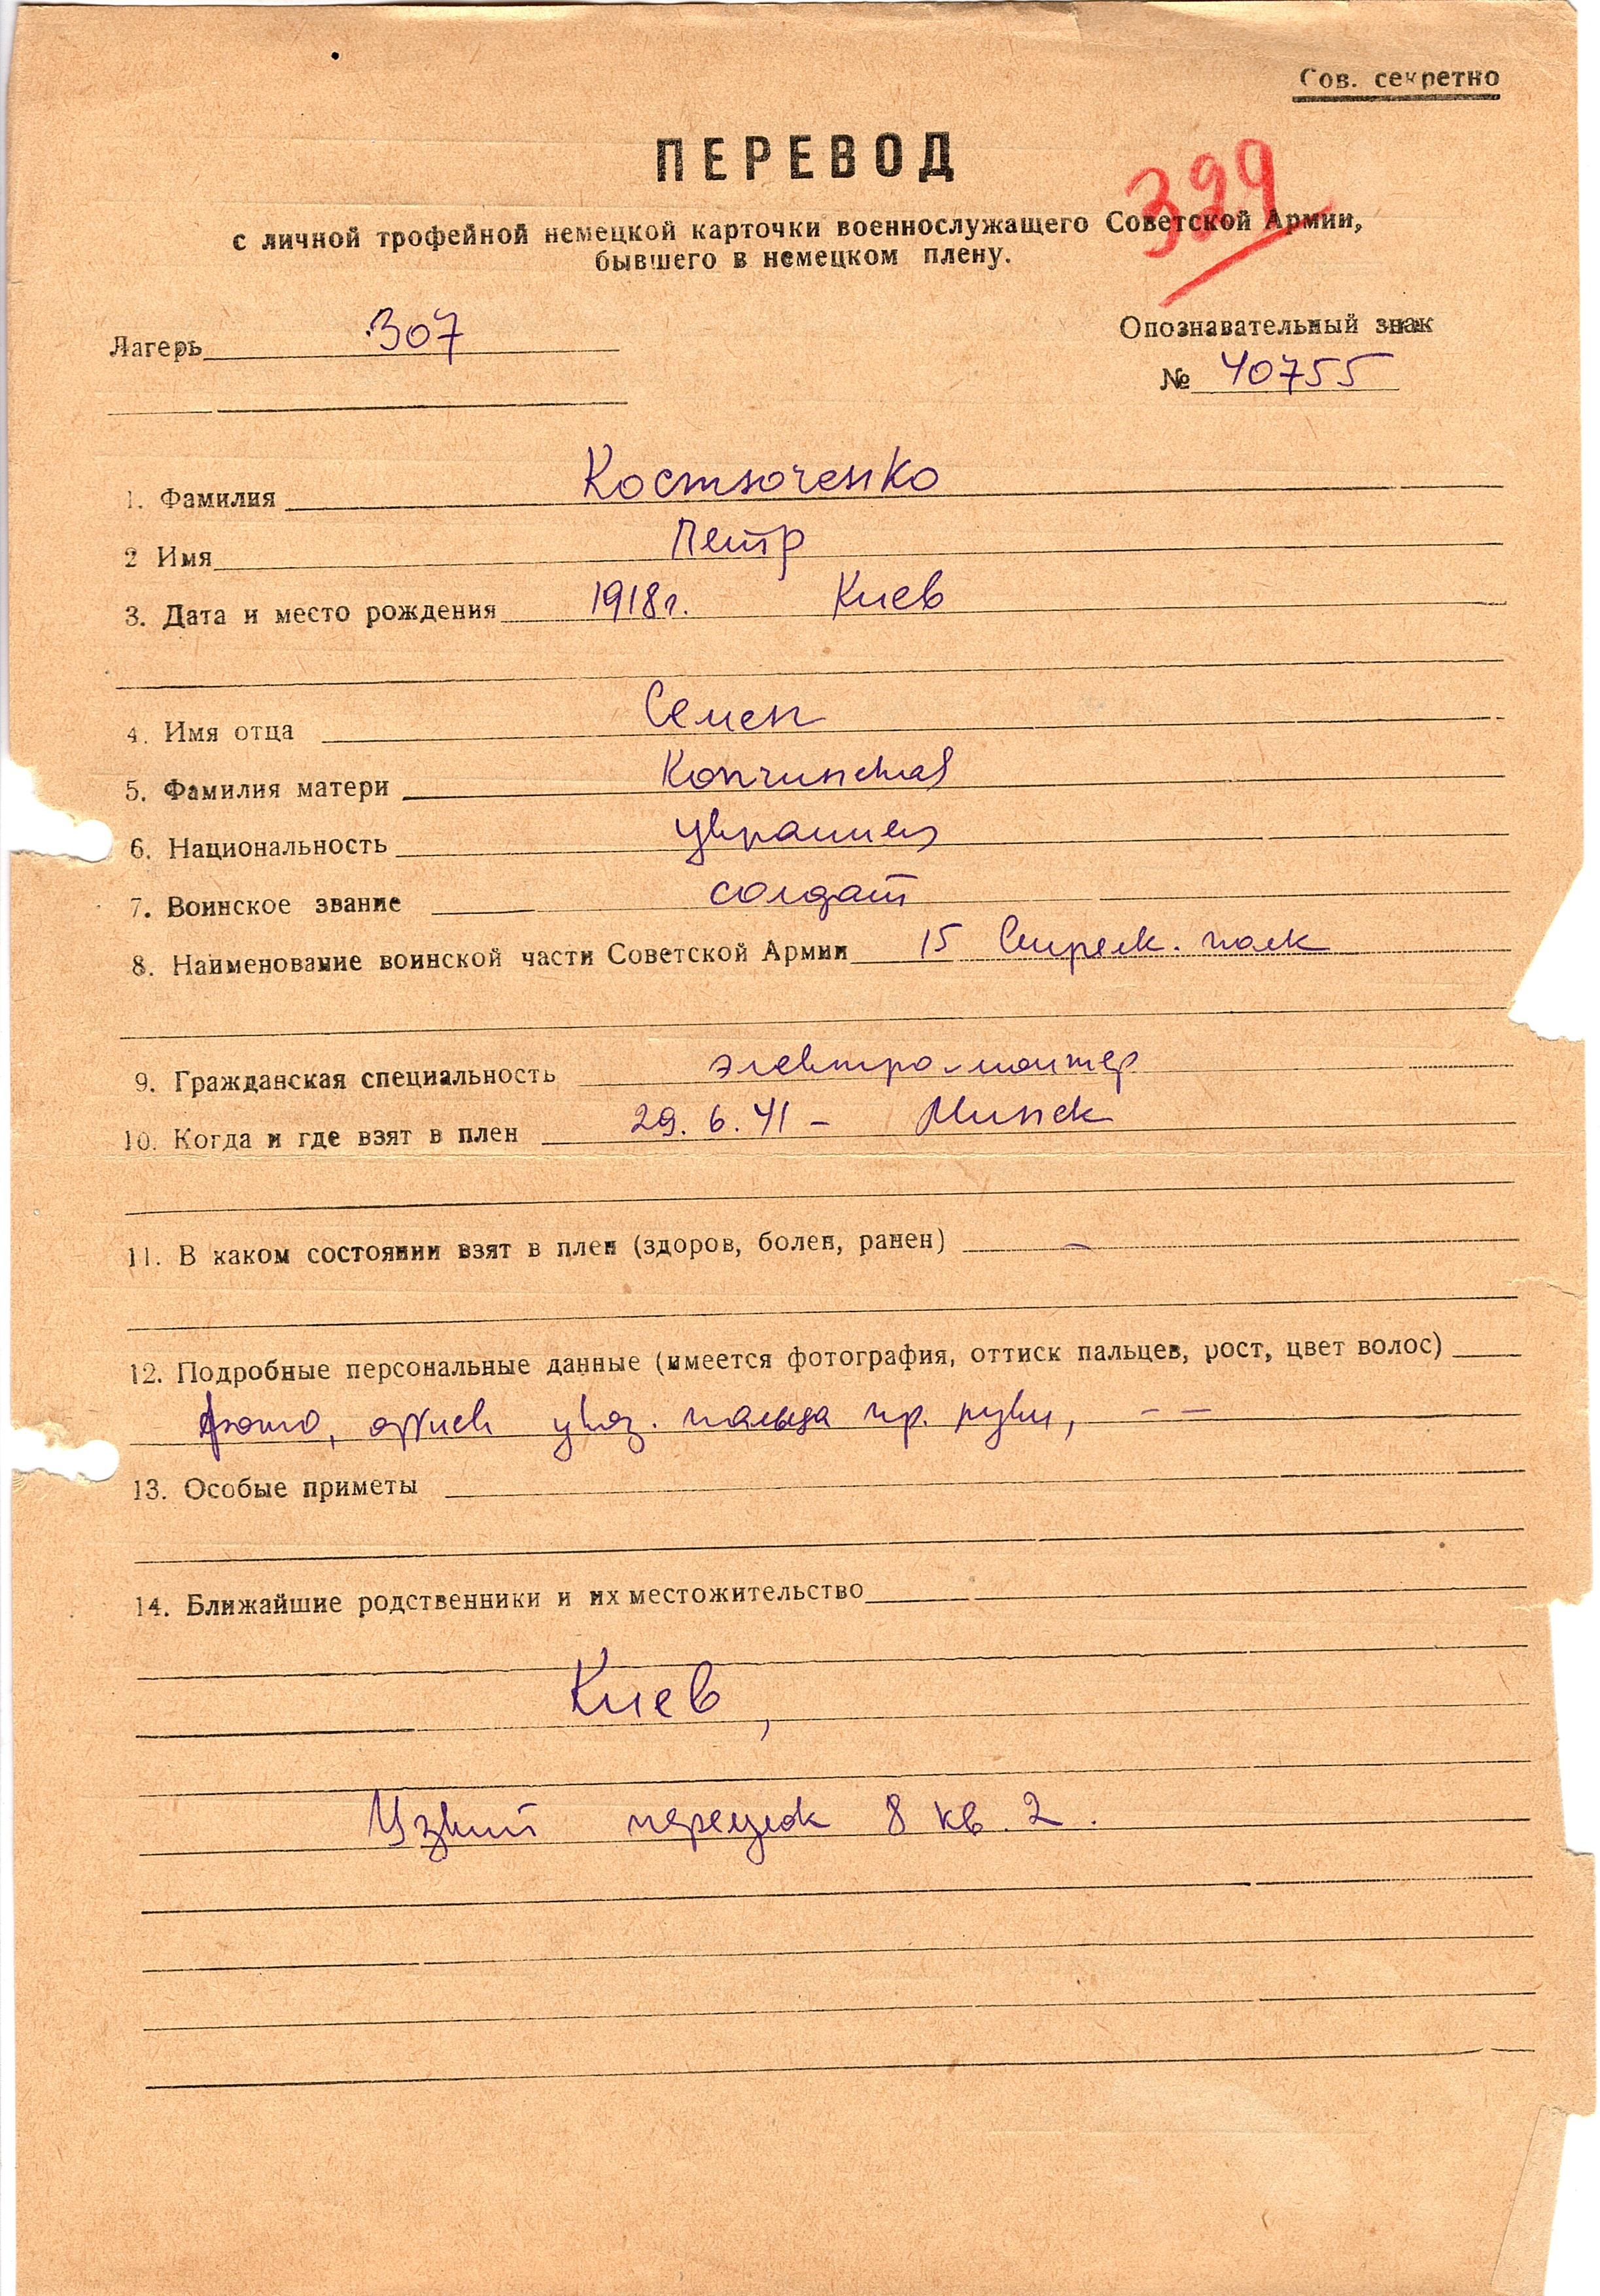 Сов. секретно
ПЕРЕВОД
329
с личной трофейной немецкой карточки военнослужащего Советской Армии,
бывшего в немецком плену.
Лагерь 307
Опознавательный знак
№ 40755
1. Фамилия Костюченко
2 Имя Петр
3. Дата и место рождения 1918г. Киев
4. Имя отца Семен
5. Фамилия матери
6. Национальность украинец
7. Воинское звание солдат
8. Наименование воинской части Советской Армии 15 Стрелк. полк
9. Гражданская специальность электро-монтер
10. Когда и где взят в плен 29.6.41 - Минск
11. В каком состоянии взят в плен (здоров, болен, ранен) -
12. Подробные персональные данные (имеется фотография, оттиск пальцев, рост, цвет волос)
фото, оттиск указ. пальца пр. руки, - -
13. Особые приметы
14. Ближайшие родственники и их местожительство
Киев,
Узкий переулок 8 кв. 2.